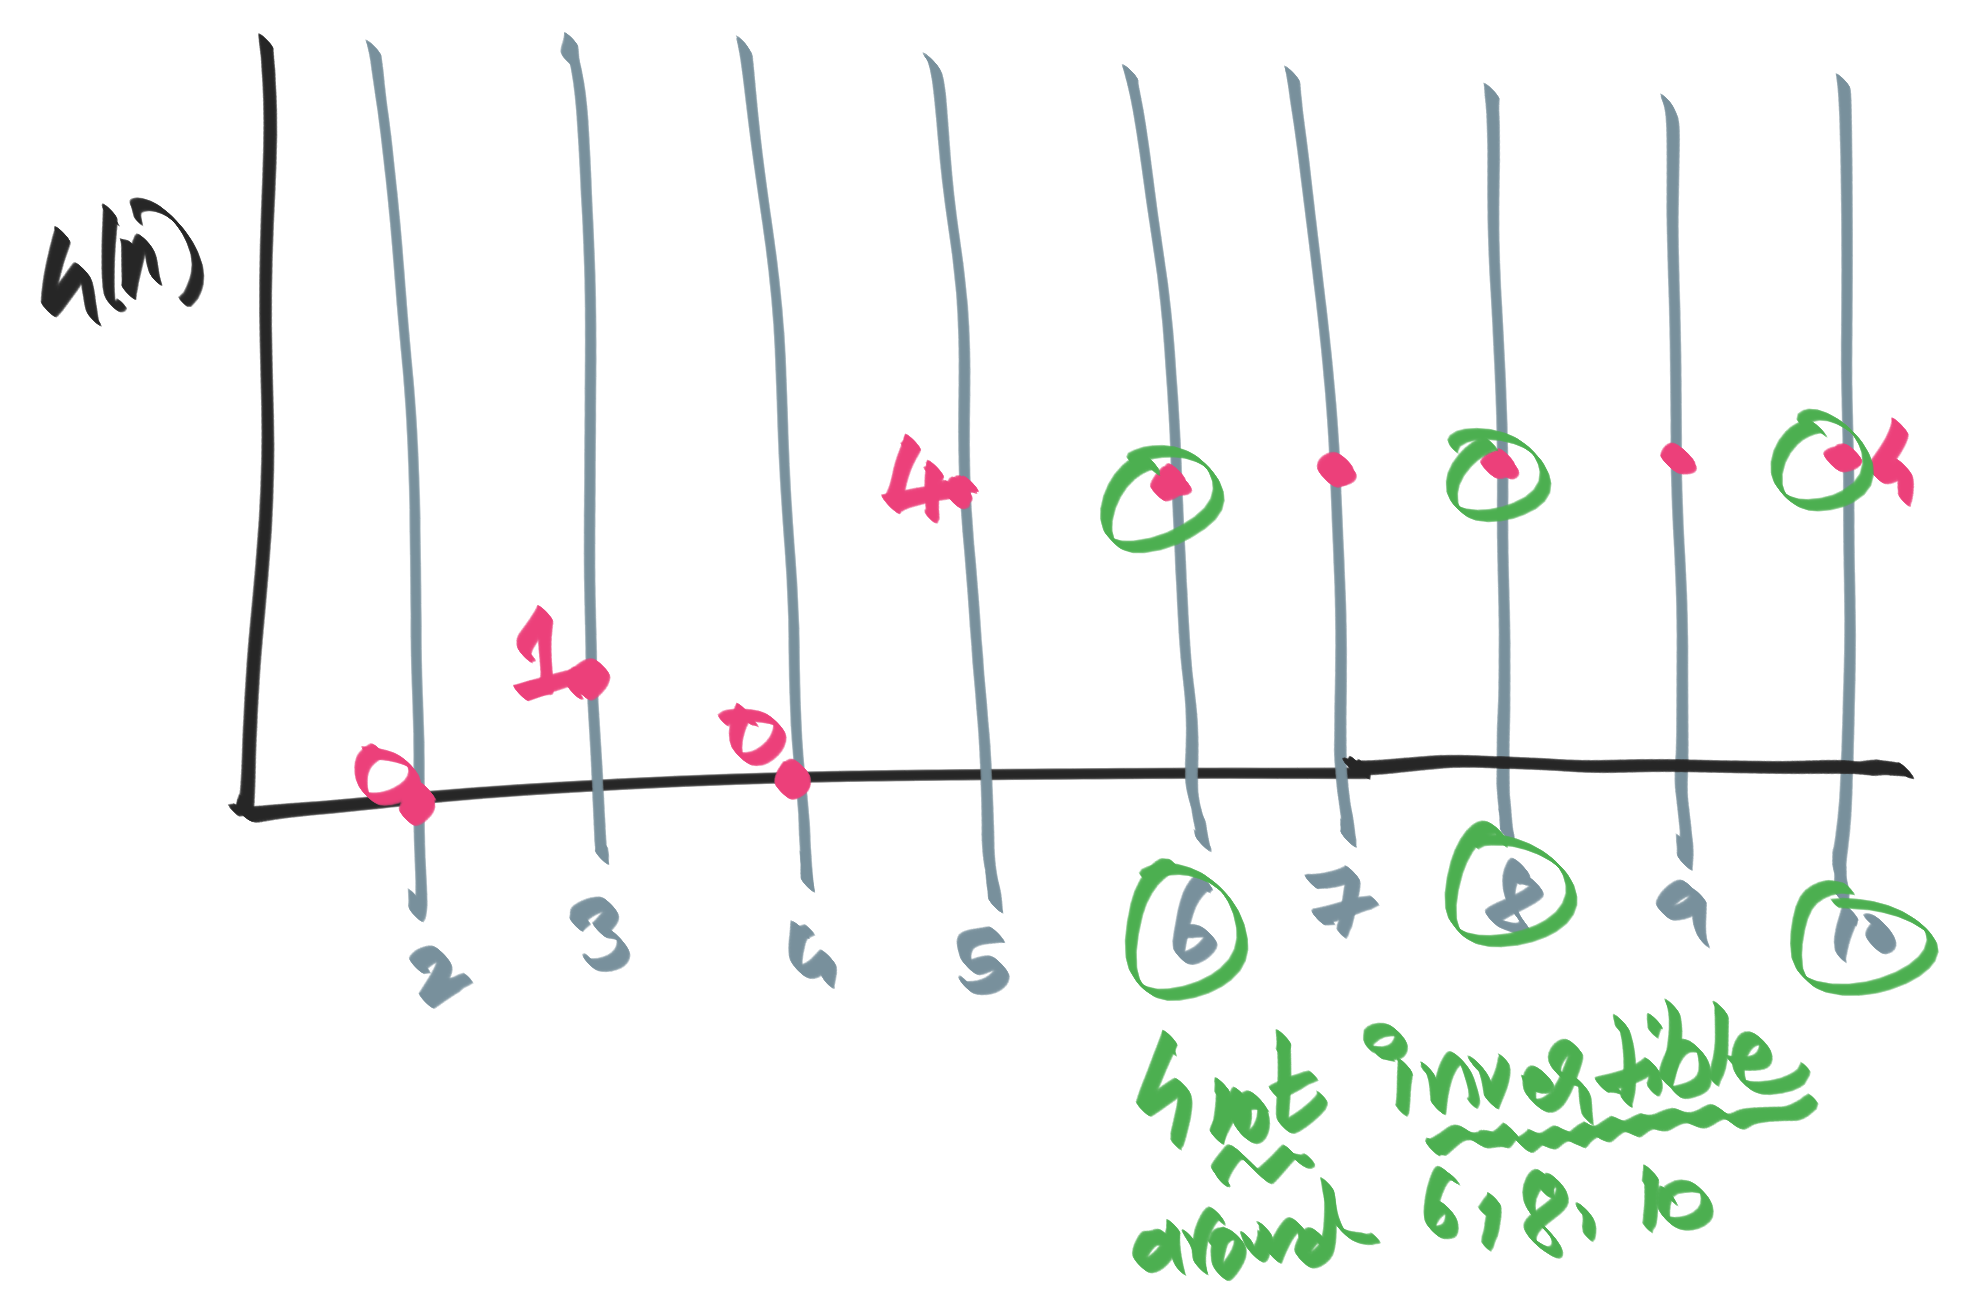 h(n)
4
4
1
0
0
2 3 4 5 6 7 8 9 10
h not invertible
around 6, 8, 10